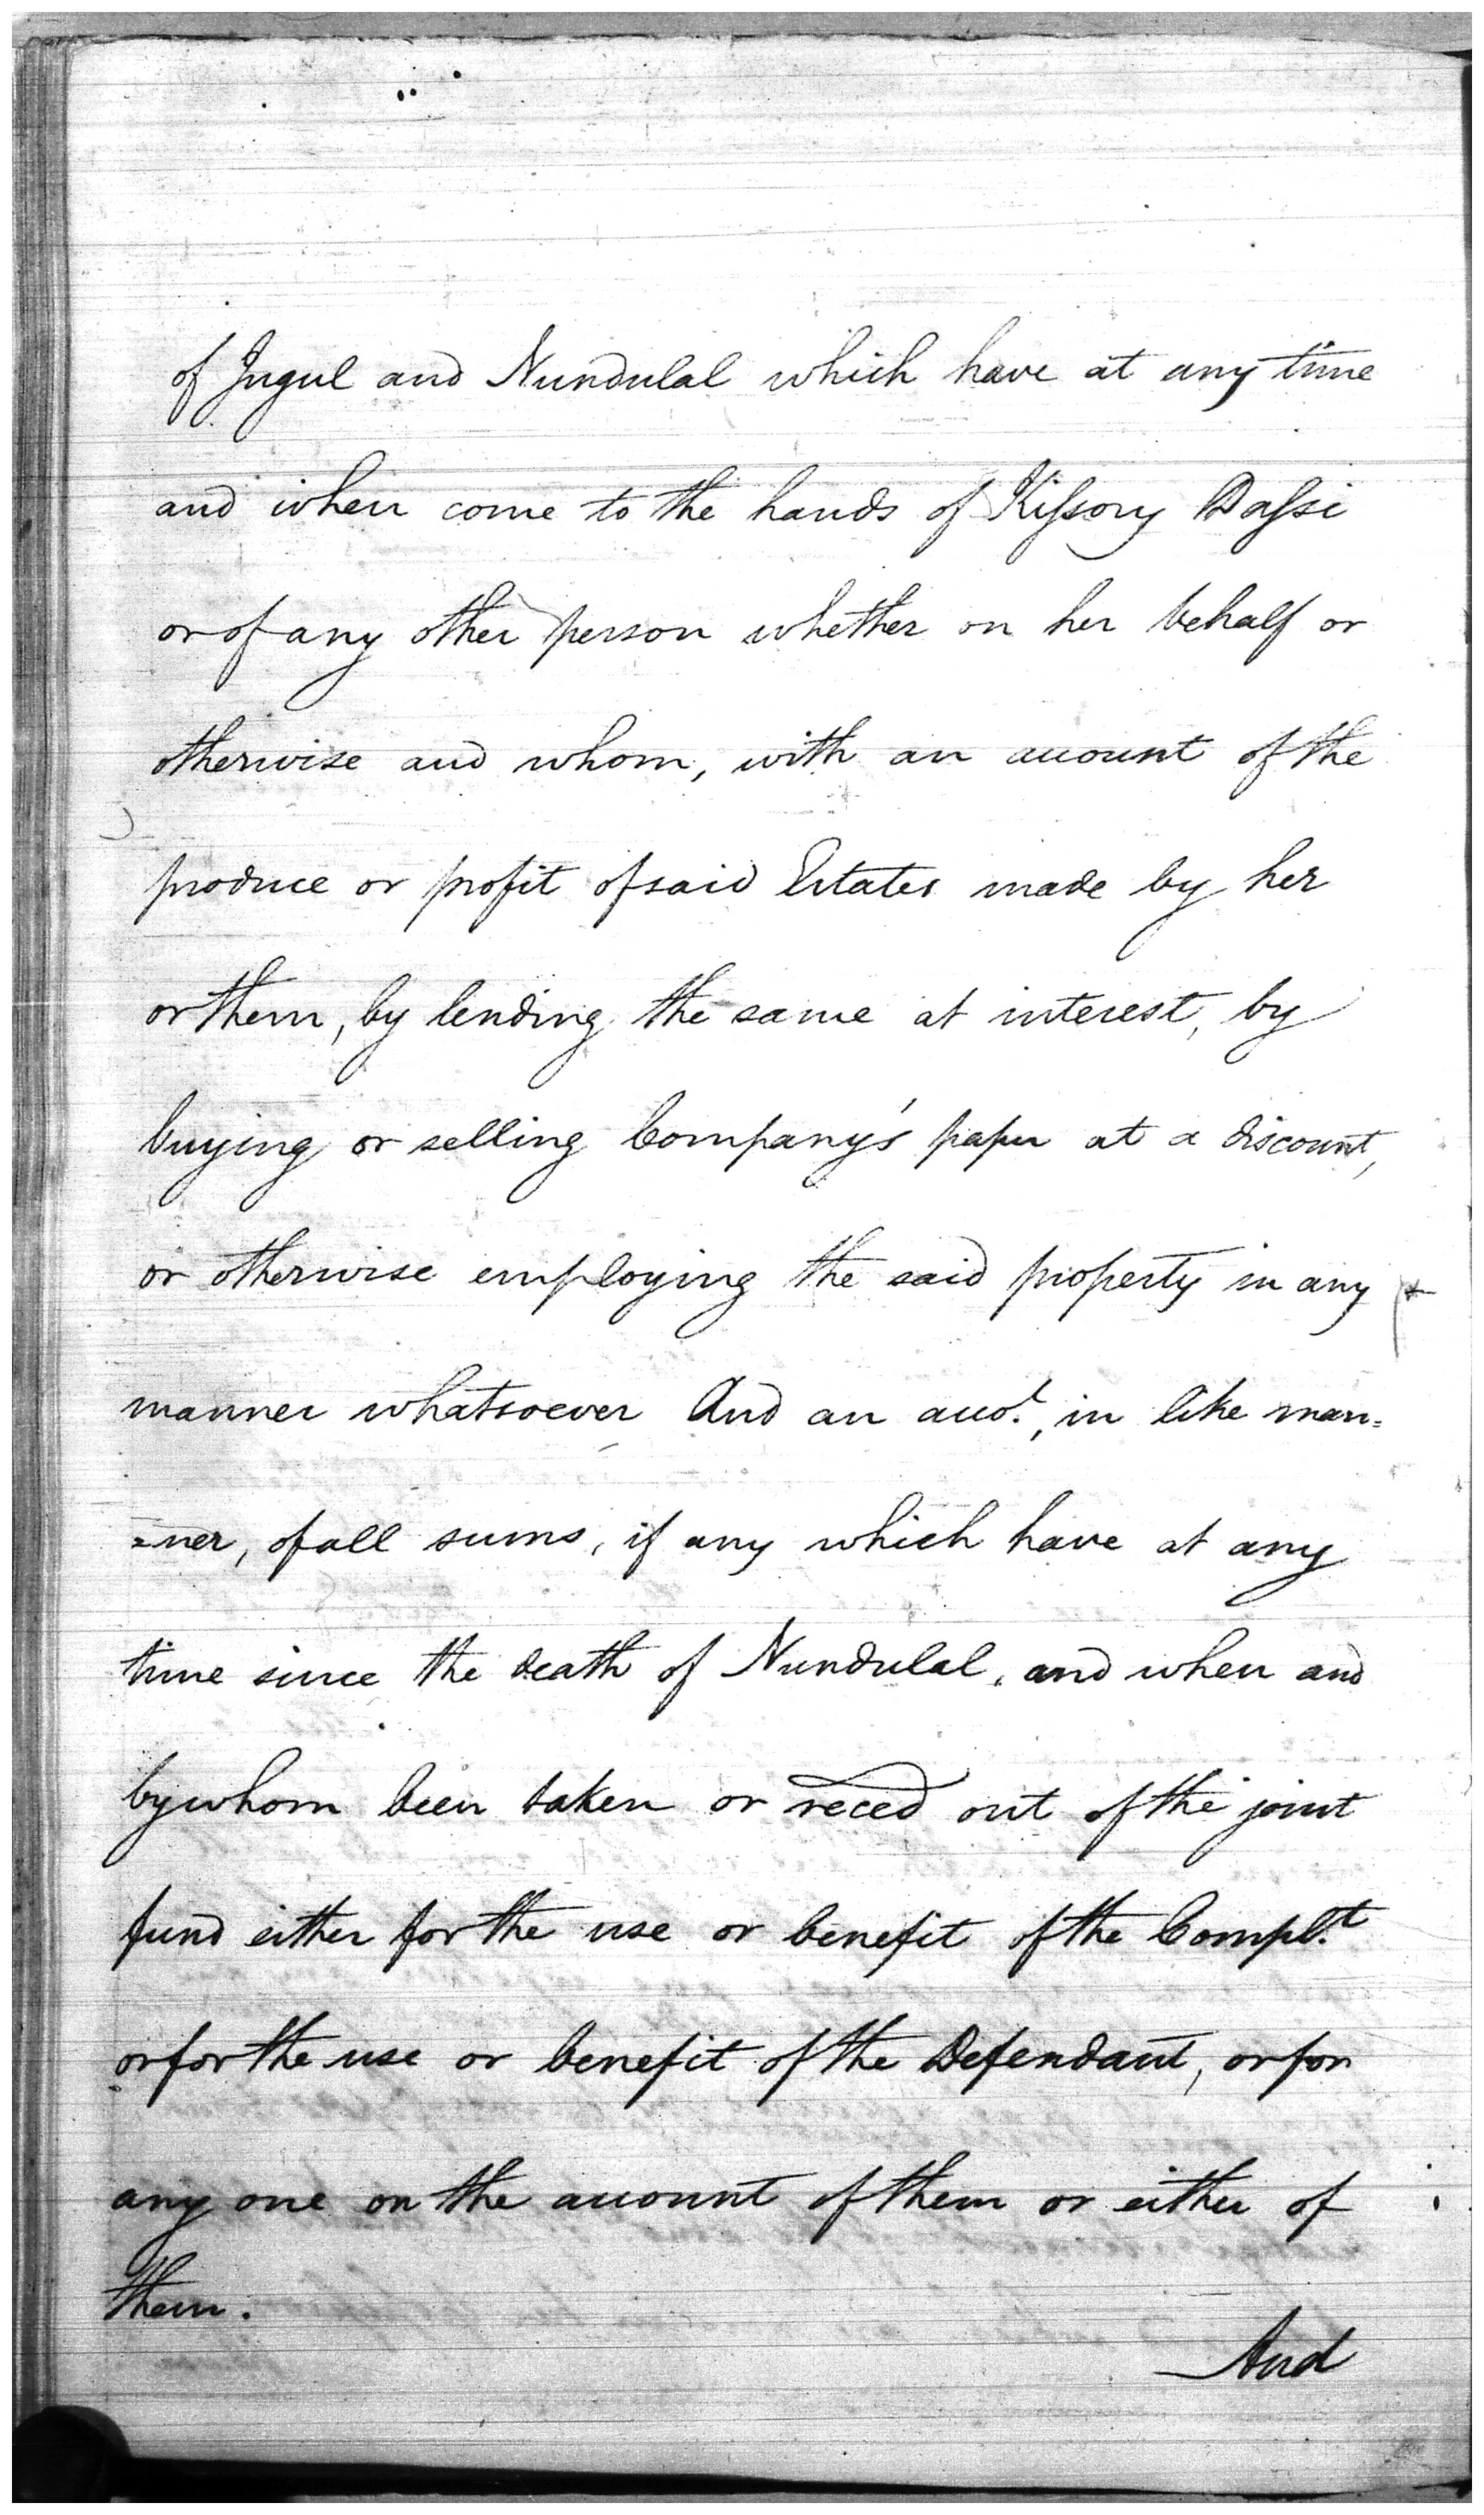 of Jugul and Nundulal which have at any time
and when come to the hands of Kissory Dassi
or of any other person whether on her behalf or
otherwise and whom, with an account of the
produce or profit of said Estates made by her
or them, by lending the same at interest, by
buying or selling Company's paper at a discount,
or otherwise employing the said property in any
manner whatsoever And an acco.t, in like man=
=ner, of all sums, if any which have at any
time since the death of Nundulal, and when and
by whom been taken or reced out of the joint
fund either for the use or benefit of the Compl.t
or for the use or benefit of the Defendant, or for
any one on the account of them or either of
them.
And